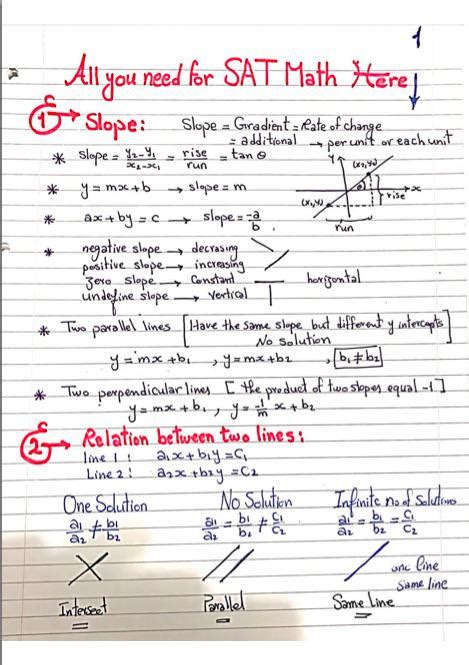 1
All you need for SAT Math Here
1 → Slope: Slope = Gradient = Rate of change
= additional → per unit or each unit
* Slope = y₂-y₁/x₂-x₁ = rise/run = tan θ
y (x₂,y₂)
θ x
* y = mx + b → slope = m
(x₁,y₁) rise
* ax + by = c → slope = -a/b
run
* negative slope → decrasing
positive slope → increasing
Zero slope → Constant — horizontal
undefine slope → Vertical |
* Two parallel lines [Have the same slope but different y intercepts]
No solution
y = mx + b₁ , y = mx + b₂ , b₁ ≠ b₂
* Two perpendicular lines [the product of two slopes equal -1]
y = mx + b₁ , y = -1/m x + b₂
2 → Relation between two lines:
line 1: a₁x + b₁y = C₁
Line 2: a₂x + b₂y = C₂
One Solution No Solution Infinite no of solutions
a₁/a₂ ≠ b₁/b₂ a₁/a₂ = b₁/b₂ ≠ C₁/C₂ a₁/a₂ = b₁/b₂ = C₁/C₂
one line
Same line
Intersect Parallel Same Line